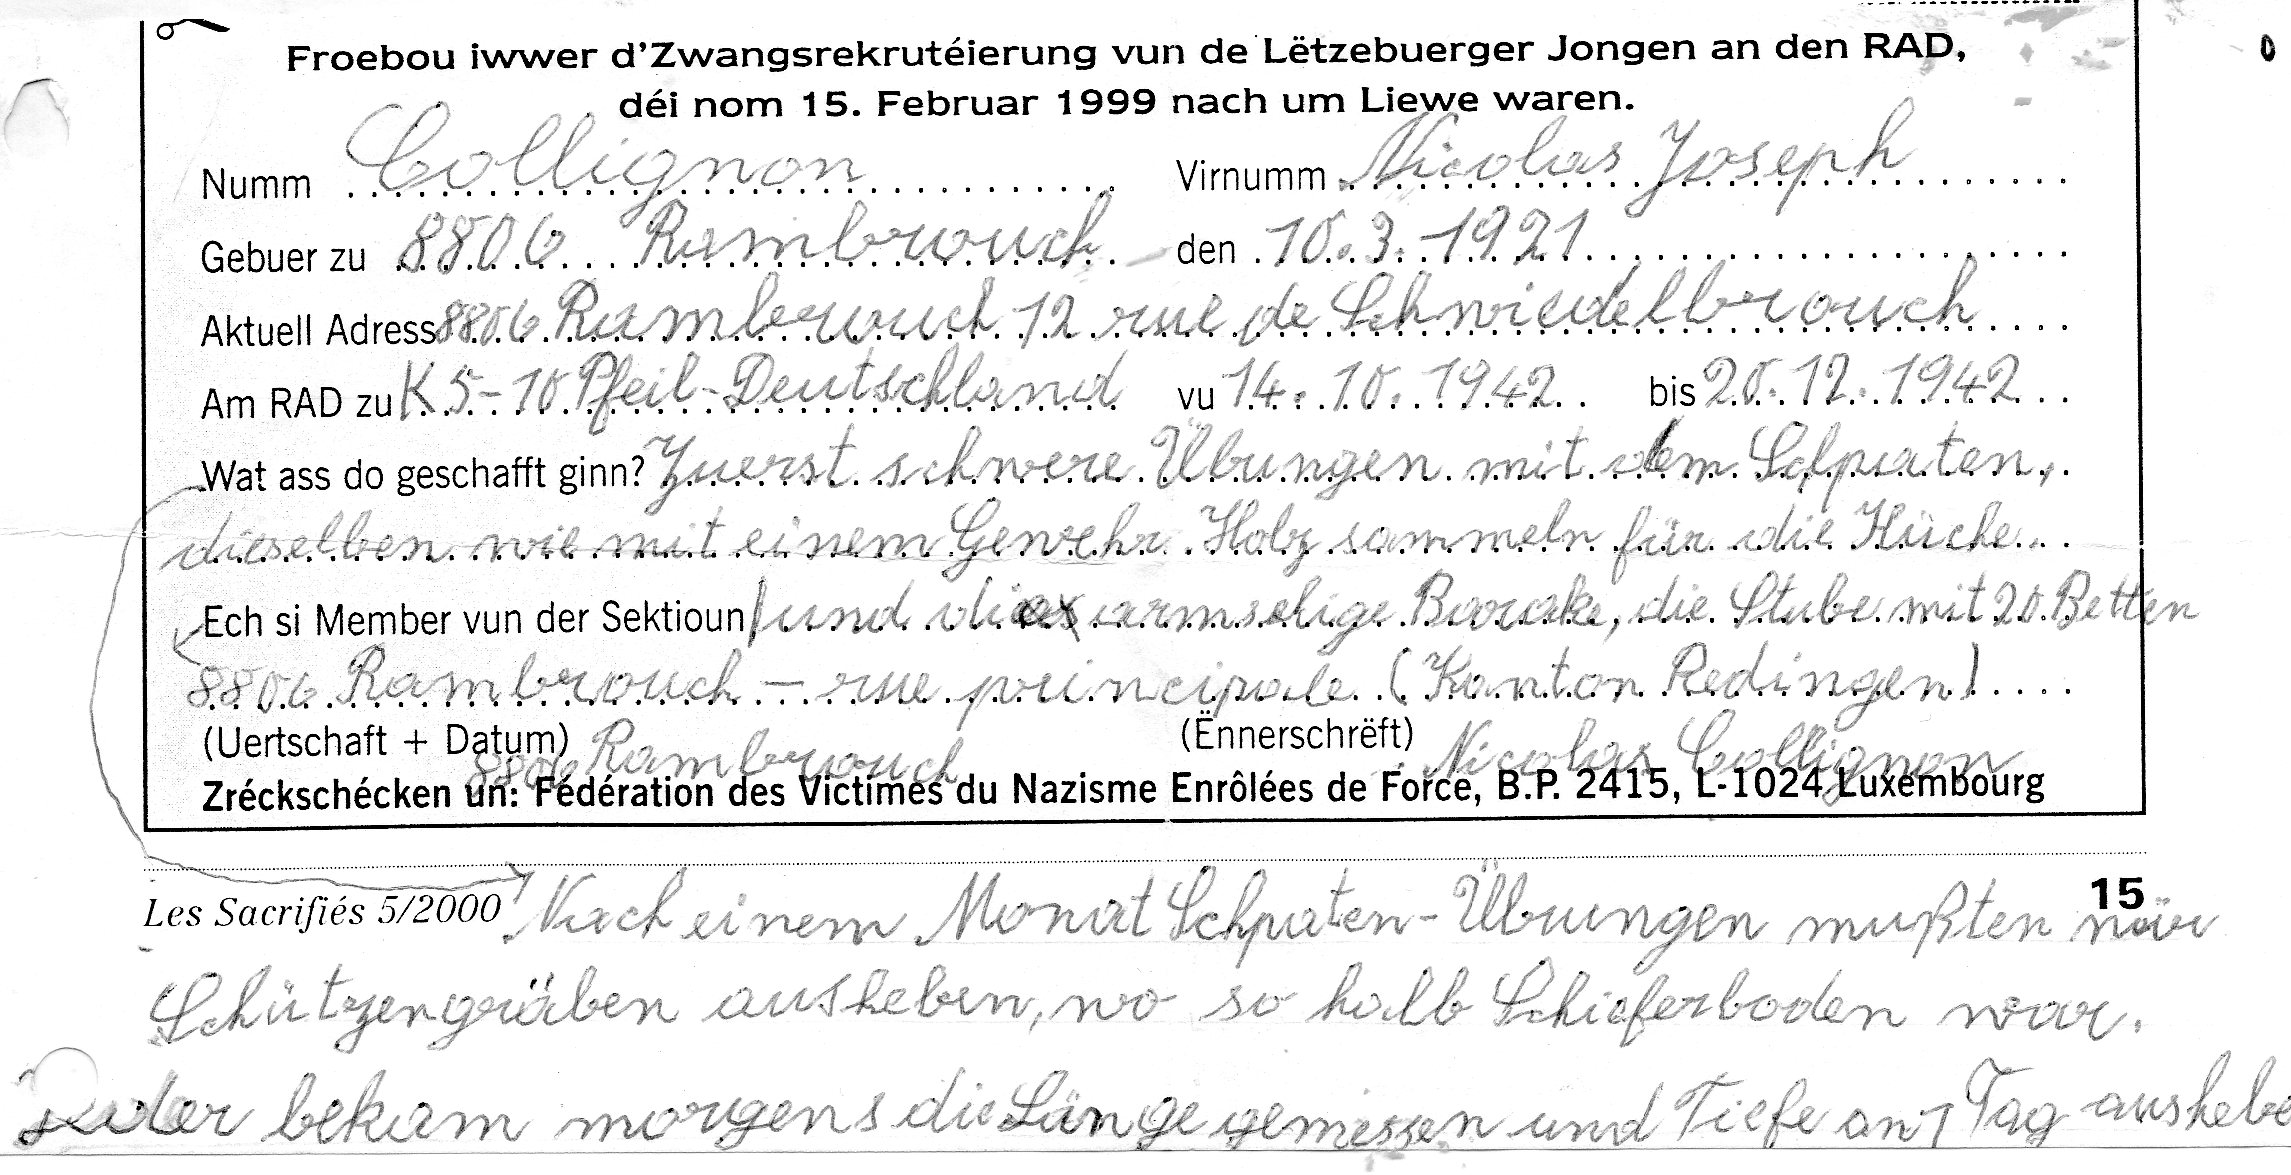 Froebou iwwer d'Zwangsrekrutéierung vun de Lëtzebuerger Jongen an den RAD,
déi nom 15. Februar 1999 nach um Liewe waren.
Numm Collignon Virnumm Nicolas Joseph
Gebuer zu 8806 Rambrouch den 10.3.-1921
Aktuell Adress 8806 Rambrouch 12 rue de Schwiedelbrouch
Am RAD zu K 5-10 Pfeil-Deutschland vu 14. 10. 1942 bis 20. 12. 1942
Wat ass do geschafft ginn? Zuerst schwere Übungen mit dem Schpaten,
dieselben wie mit einem Gewehr. Holz sammeln für die Küche
Ech si Member vun der Sektioun und die armselige Barake, die Stube mit 20 Betten
8806 Rambrouch - rue principale (Kanton Redingen)
(Uertschaft + Datum) 8806 Rambrouch (Ënnerschrëft) Nicolas Collignon
Zréckschécken un: Fédération des Victimes du Nazisme Enrôlées de Force, B.P. 2415, L-1024 Luxembourg
Les Sacrifiés 5/2000 Nach einem Monat Schpaten-Übungen mußten wir 15
Schützengräben ausheben, wo so halb Schieferboden war.
Jeder bekam morgens die Länge gemessen und Tiefe an 1 Tag aushebe